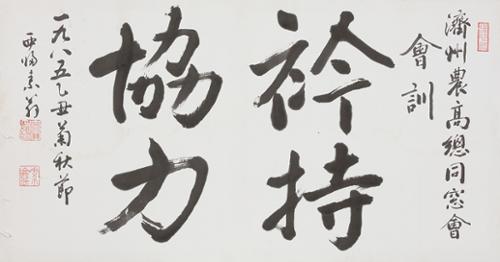 濟州農高總同窓會
會訓
衿持
協力
一九八五乙丑菊秋節
西歸素翁